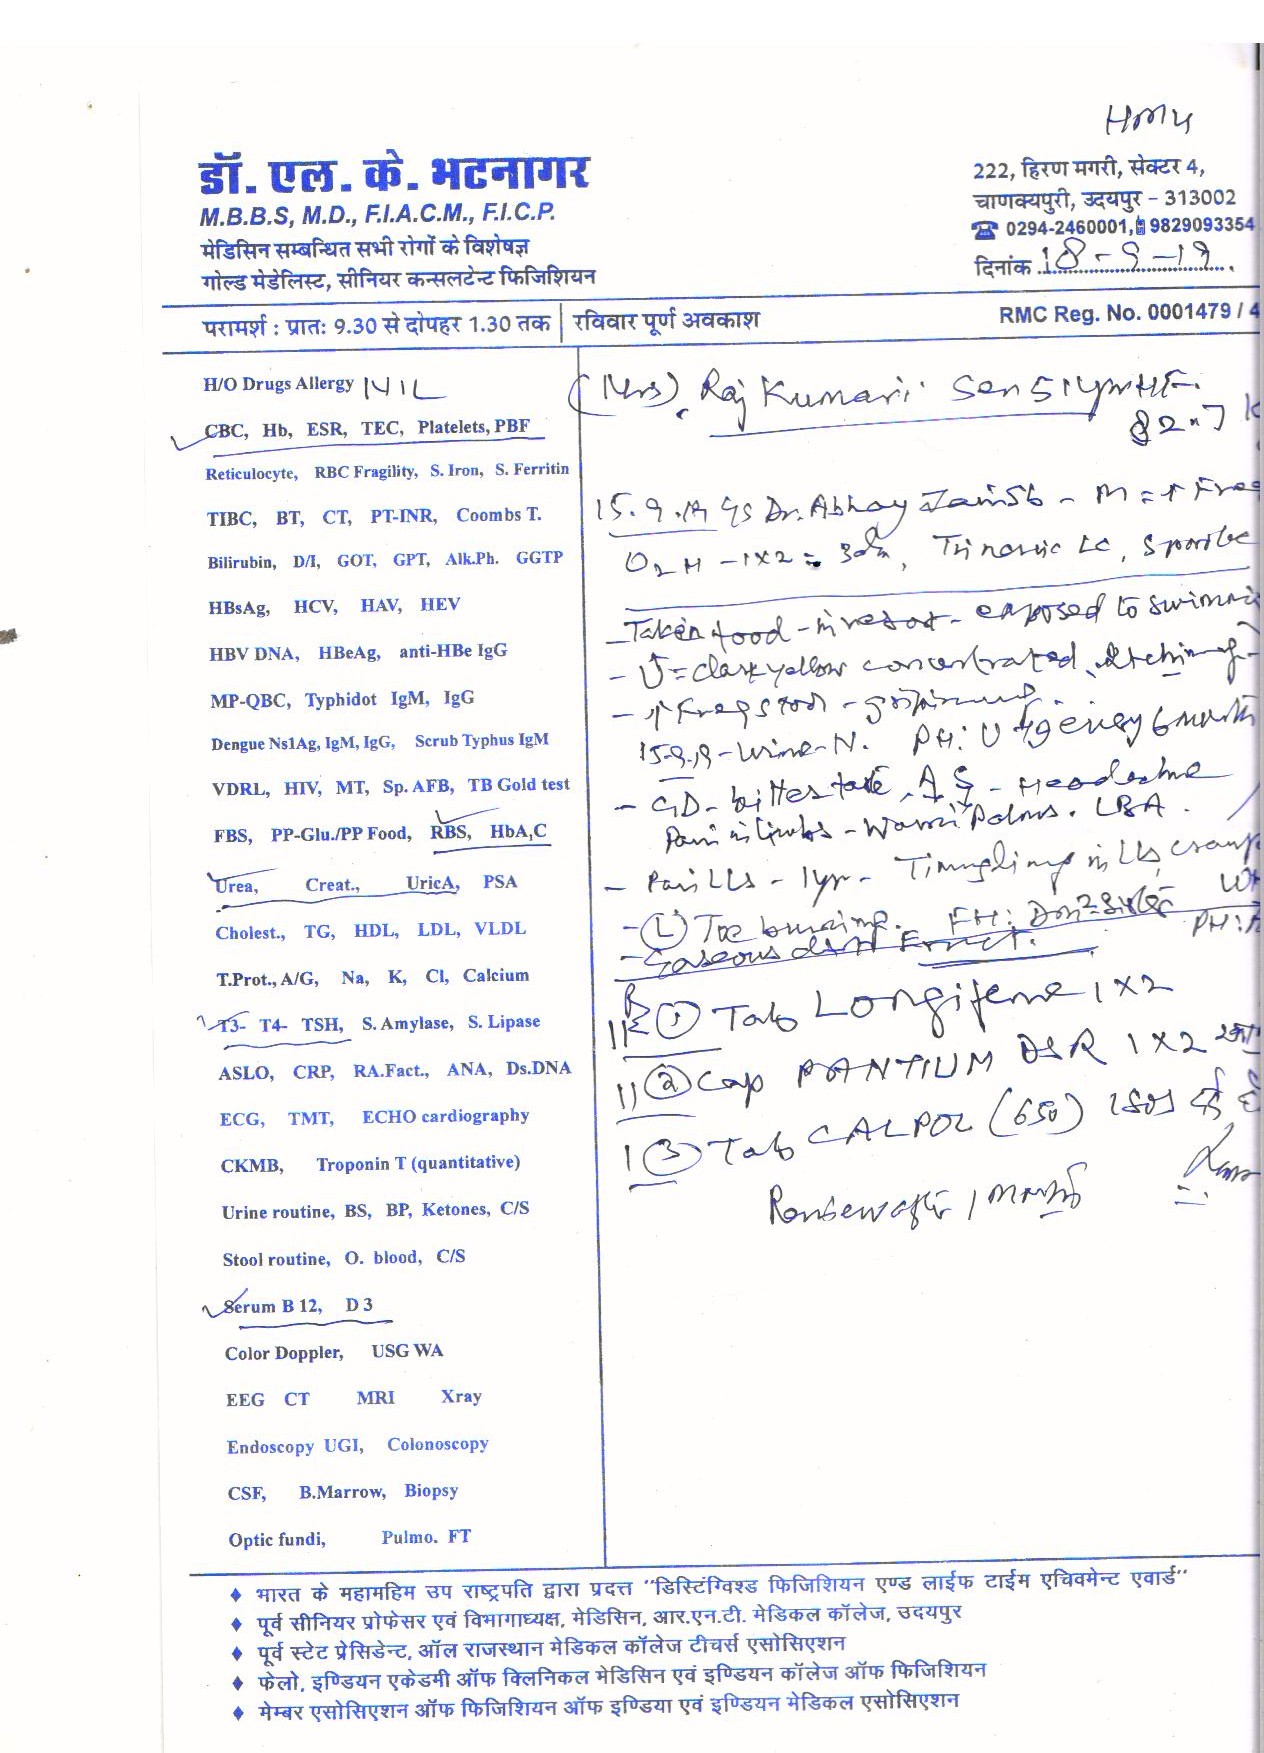 HM4
डॉ. एल. के. भटनागर
M.B.B.S, M.D., F.I.A.C.M., F.I.C.P.
मेडिसिन सम्बन्धित सभी रोगों के विशेषज्ञ
गोल्ड मेडेलिस्ट, सीनियर कन्सलटेन्ट फिजिशियन
222, हिरण मगरी, सेक्टर 4,
चाणक्यपुरी, उदयपुर - 313002
☎ 0294-2460001, 9829093354
दिनांक 18-9-19
परामर्श : प्रातः 9.30 से दोपहर 1.30 तक | रविवार पूर्ण अवकाश
RMC Reg. No. 0001479 / 4
H/O Drugs Allergy NIL
CBC, Hb, ESR, TEC, Platelets, PBF
Reticulocyte, RBC Fragility, S. Iron, S. Ferritin
TIBC, BT, CT, PT-INR, Coombs T.
Bilirubin, D/I, GOT, GPT, Alk.Ph. GGTP
HBsAg, HCV, HAV, HEV
HBV DNA, HBeAg, anti-HBe IgG
MP-QBC, Typhidot IgM, IgG
Dengue Ns1Ag, IgM, IgG, Scrub Typhus IgM
VDRL, HIV, MT, Sp. AFB, TB Gold test
FBS, PP-Glu./PP Food, RBS, HbA,C
Urea, Creat., UricA, PSA
Cholest., TG, HDL, LDL, VLDL
T.Prot., A/G, Na, K, Cl, Calcium
T3- T4- TSH, S. Amylase, S. Lipase
ASLO, CRP, RA.Fact., ANA, Ds.DNA
ECG, TMT, ECHO cardiography
CKMB, Troponin T (quantitative)
Urine routine, BS, BP, Ketones, C/S
Stool routine, O. blood, C/S
Serum B 12, D 3
Color Doppler, USG WA
EEG CT MRI Xray
Endoscopy UGI, Colonoscopy
CSF, B.Marrow, Biopsy
Optic fundi, Pulmo. FT
(Mrs). Raj Kumari Sen 51yr
15.9.19 Dr. Abhay Jain
O2H - 1x2
- Taken food - exposed to
- U = dark yellow concentrated, itching
- ↑ Freq stool
15.9.19 - Urine - N. PH: U 6 month
- GD - bitter taste, - Headache
Pain in limbs - Warm Palms. LBA.
- Pain LLs - 1yr - Tingling in LLs, cramp
- (L) Toe burning. FH: Dm2 Sister
- Gaseous dist Eruct.
① Tab Longifene 1x2
② Cap PANTIUM DSR 1x2
③ Tab CALPOL (650)
1 month
♦ भारत के महामहिम उप राष्ट्रपति द्वारा प्रदत्त "डिस्टिंग्विश्ड फिजिशियन एण्ड लाईफ टाईम एचिवमेन्ट एवार्ड"
♦ पूर्व सीनियर प्रोफेसर एवं विभागाध्यक्ष, मेडिसिन, आर.एन.टी. मेडिकल कॉलेज, उदयपुर
♦ पूर्व स्टेट प्रेसिडेन्ट, ऑल राजस्थान मेडिकल कॉलेज टीचर्स एसोसिएशन
♦ फेलो, इण्डियन एकेडमी ऑफ क्लिनिकल मेडिसिन एवं इण्डियन कॉलेज ऑफ फिजिशियन
♦ मेम्बर एसोसिएशन ऑफ फिजिशियन ऑफ इण्डिया एवं इण्डियन मेडिकल एसोसिएशन